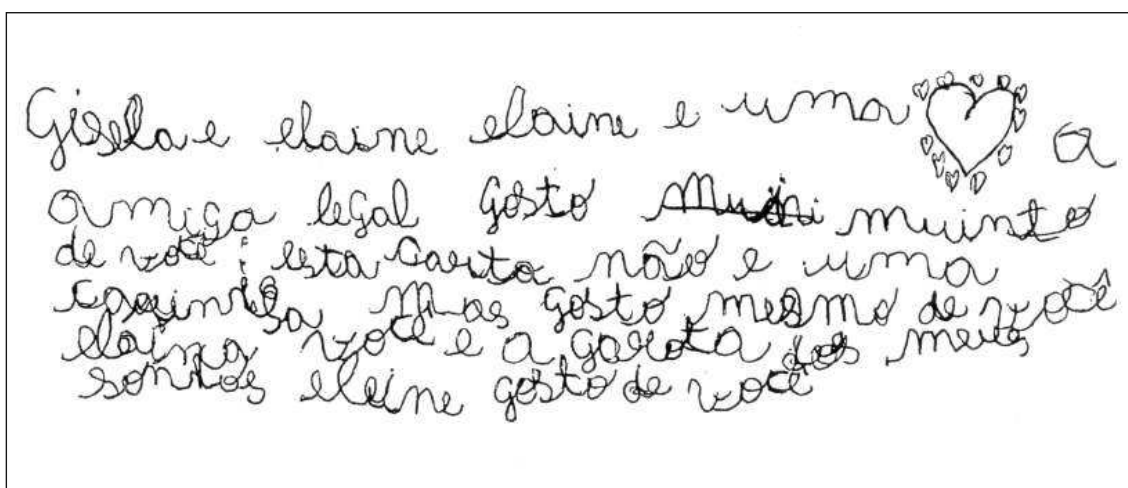 Gisela e elaine elaine e uma a
amiga legal gosto muinto
de você esta carta não e uma
mas gosto mesmo de você
elaina você e a garota dos meus
sontos eleine gosto de você